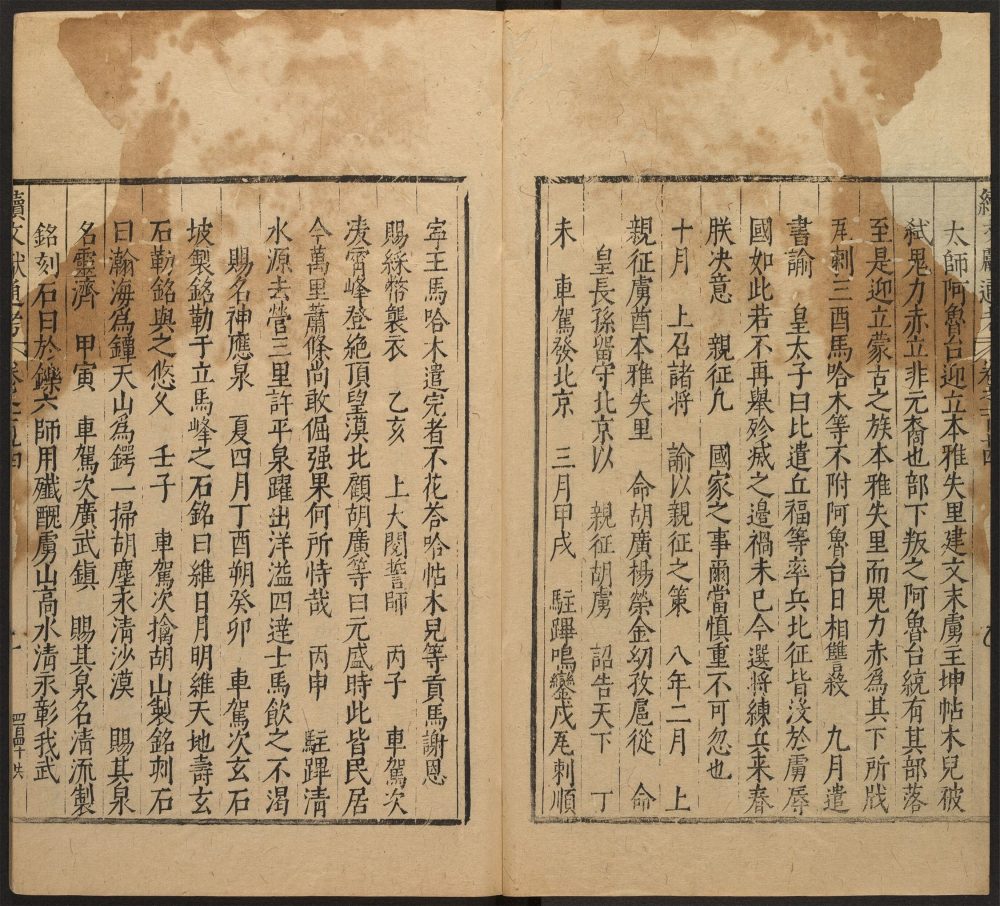 太師阿魯台迎立本雅失里建文末虜主坤帖木兒破
弒鬼力赤立非元裔也部下叛之阿魯台統有其部落
至是迎立蒙古之族本雅失里而鬼力赤為其下所戕
瓦剌三酉馬哈木等不附阿魯台日相讎殺　九月遣
書諭　皇太子曰比遣丘福等率兵北征皆沒於虜辱
國如此若不再舉殄烕之邊禍未已今選將練兵来春
朕决意　親征凢　國家之事爾當慎重不可忽也
十月　上召諸將　諭以親征之策　八年二月　上
親征虜酋本雅失里　命胡廣楊榮金幼孜扈從　命
皇長孫留守北京以　親征胡虜　詔告天下　丁
未　車駕發北京　三月甲戌　駐蹕鳴鑾戍瓦剌順
寧王馬哈木遣完者不花荅哈帖木兒等貢馬謝恩
賜綵幣襲衣　乙亥　上大閱誓師　丙子　車駕次
凌霄峰登絶頂望漠北顧胡廣等曰元盛時此皆民居
今萬里蕭條尚敢倔强果何所恃哉　丙申　駐蹕清
水源去營三里許平泉躍出洋溢四達士馬飲之不渴
賜名神應泉　夏四月丁酉朔癸卯　車駕次玄石
坡製銘勒于立馬峰之石銘曰維日月明維天地壽玄
石勒銘與之悠久　壬子　車駕次擒胡山製銘刺石
曰瀚海為鐔天山為鍔一掃胡塵永淸沙漠　賜其泉
名靈濟　甲寅　車駕次廣武鎮　賜其泉名清流製
銘刻石曰於鑠六師用殲醜虜山高水清永彰我武
續文獻通考